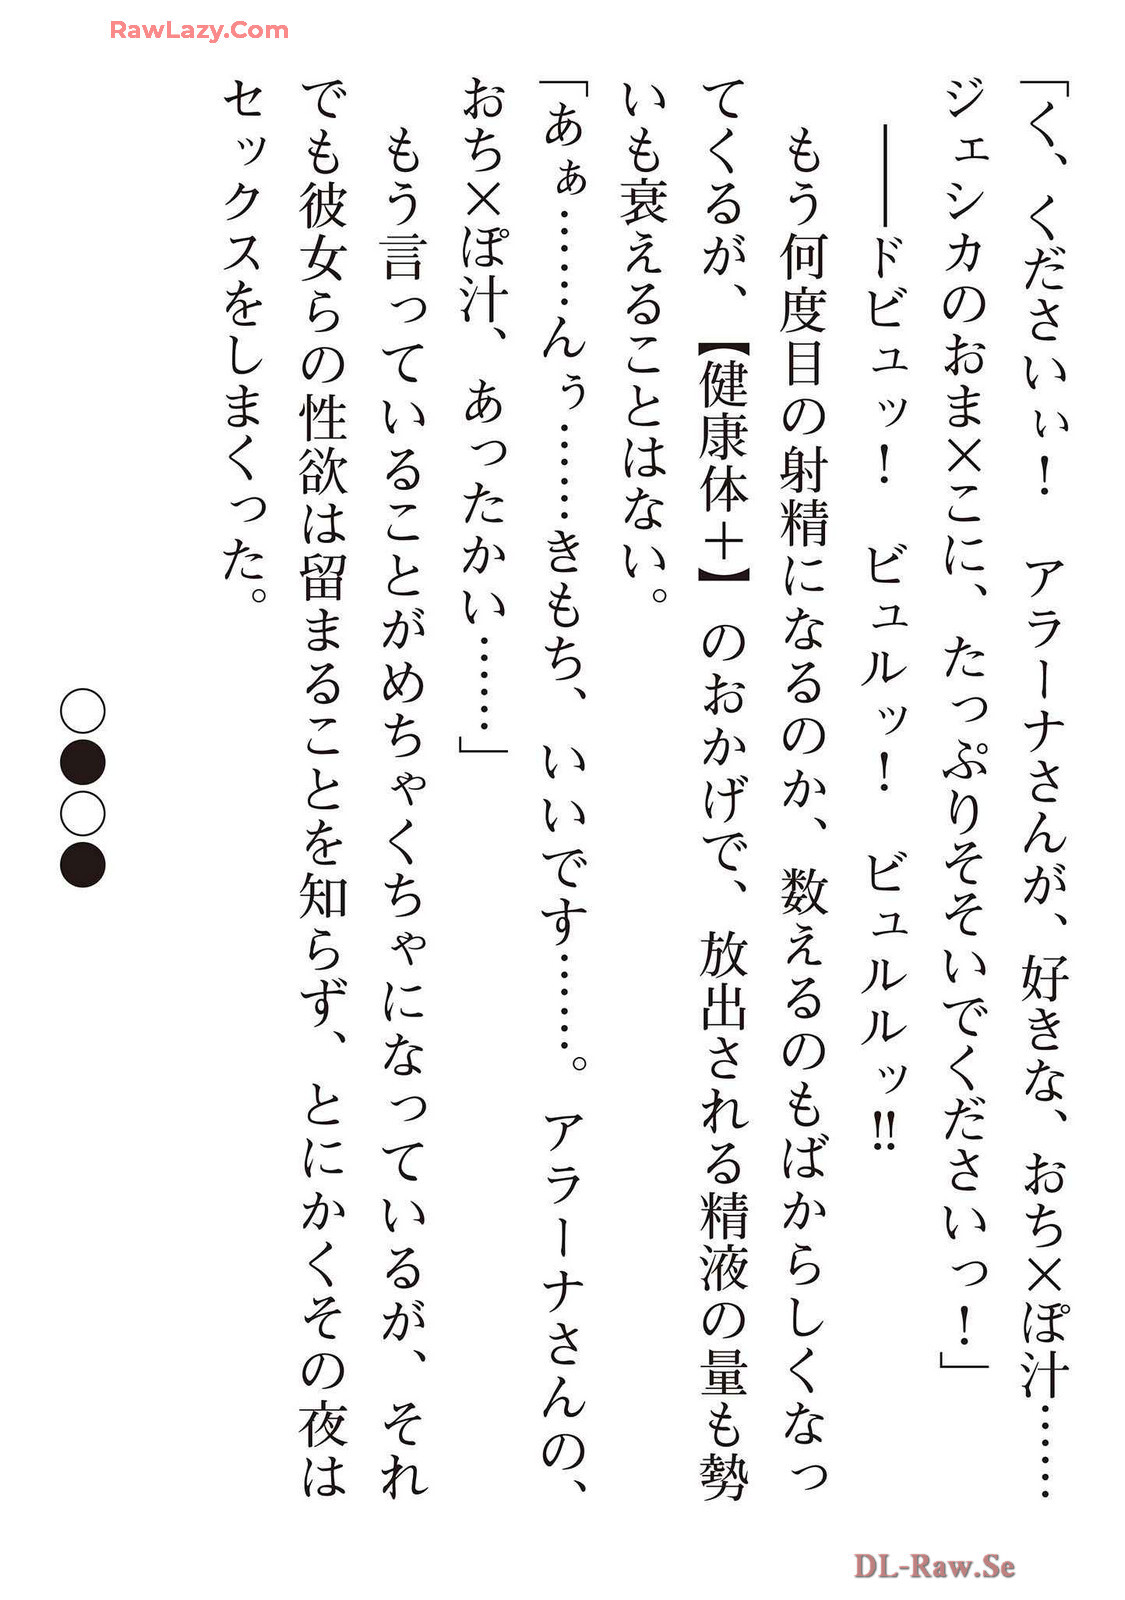 RawLazy.Com
「く、くださいぃ！　アラーナさんが、好きな、おち×ぽ汁……
ジェシカのおま×こに、たっぷりそそいでくださいっ！」
　――ドビュッ！　ビュルッ！　ビュルルッ‼
　もう何度目の射精になるのか、数えるのもばからしくなっ
てくるが、【健康体＋】のおかげで、放出される精液の量も勢
いも衰えることはない。
「あぁ……んぅ……きもち、いいです……。アラーナさんの、
おち×ぽ汁、あったかい……」
　もう言っていることがめちゃくちゃになっているが、それ
でも彼女らの性欲は留まることを知らず、とにかくその夜は
セックスをしまくった。
○●○●
DL-Raw.Se